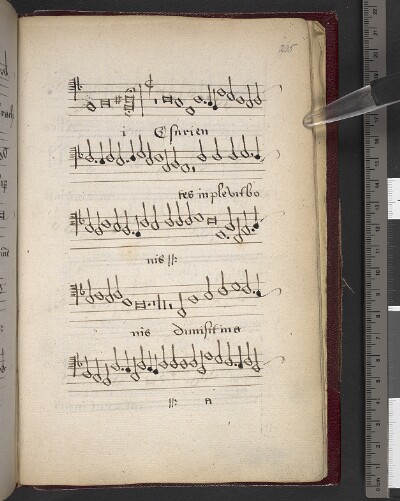 205
i Esurien
tes inplevit bo
nis
nis dimisit ina